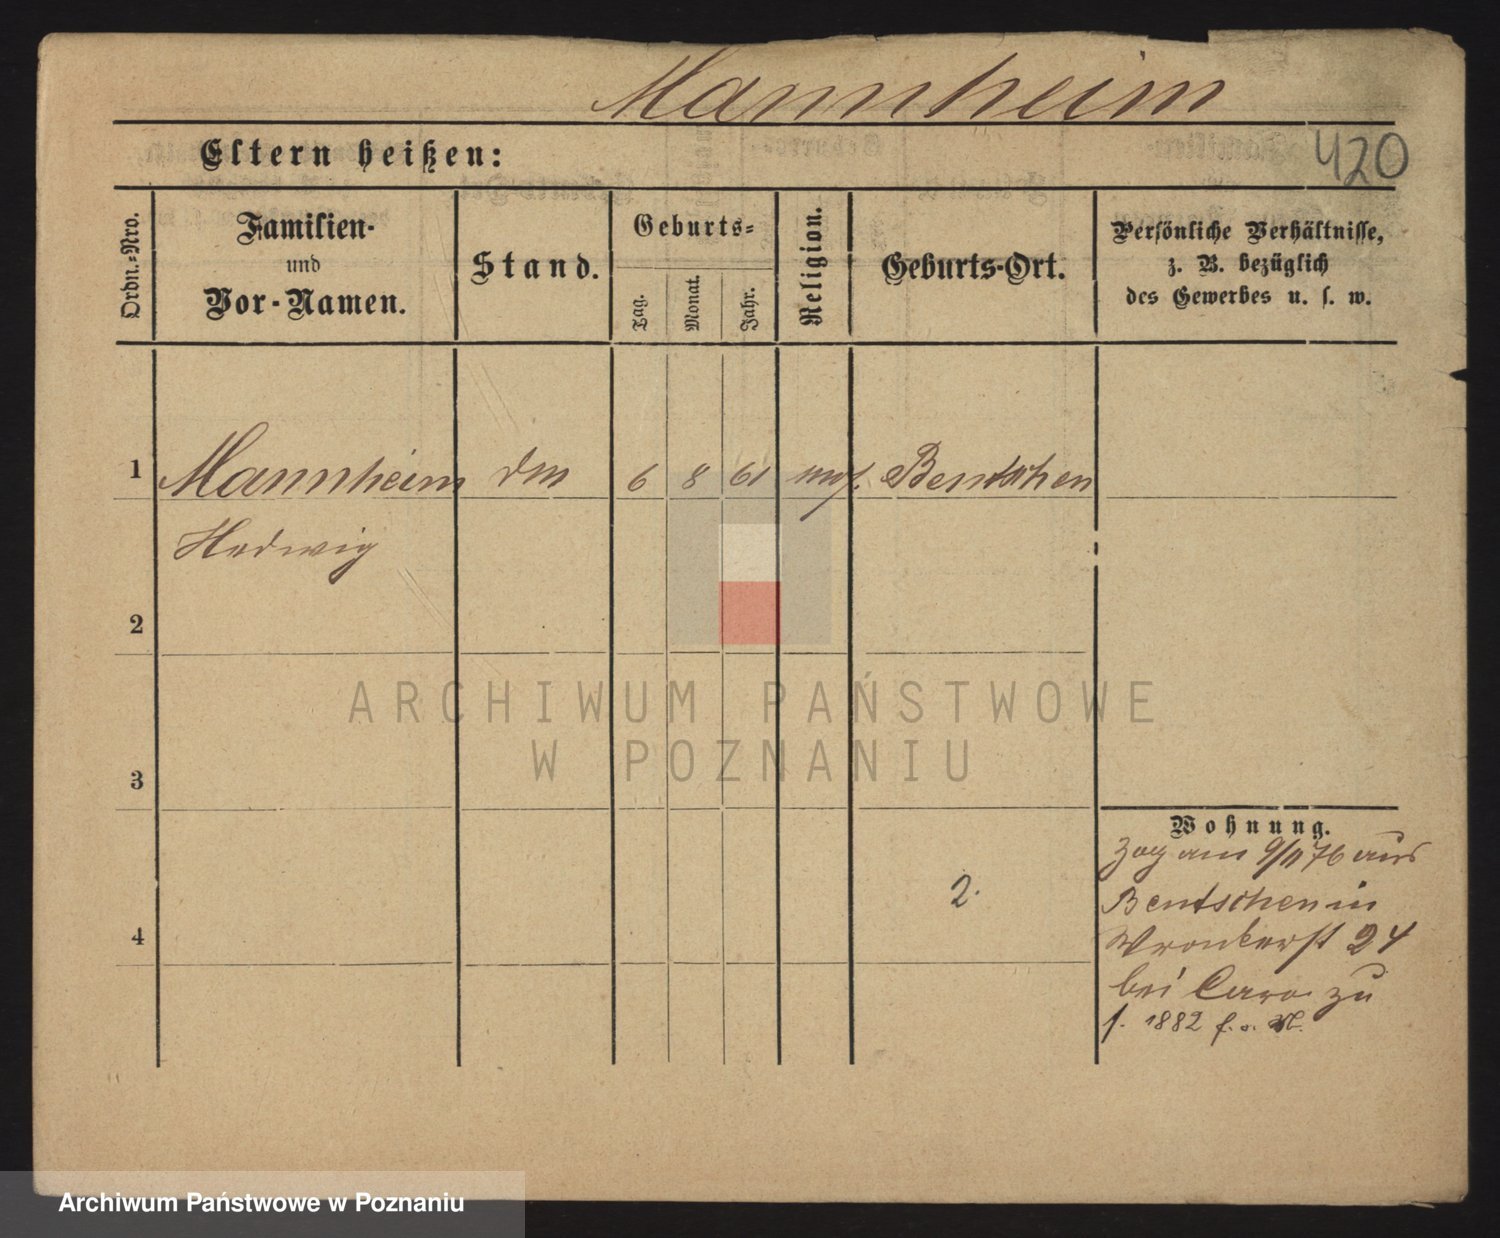 Mannheim
420
Eltern heißen:
Ordn.-Nro.
Familien-
und
Vor-Namen.
Stand.
Geburts-
Tag.
Monat.
Jahr.
Religion.
Geburts-Ort.
Persönliche Verhältnisse,
z. B. bezüglich
des Gewerbes u. s. w.
1 Mannheim 6 8 61 Bentschen
Hedwig
2
3
4
2.
Wohnung.
Zog am 9/11 76 aus
Bentschen in
Wronkerst 24
bei Caro zu
f. 1882
ARCHIWUM PAŃSTWOWE
W POZNANIU
Archiwum Państwowe w Poznaniu